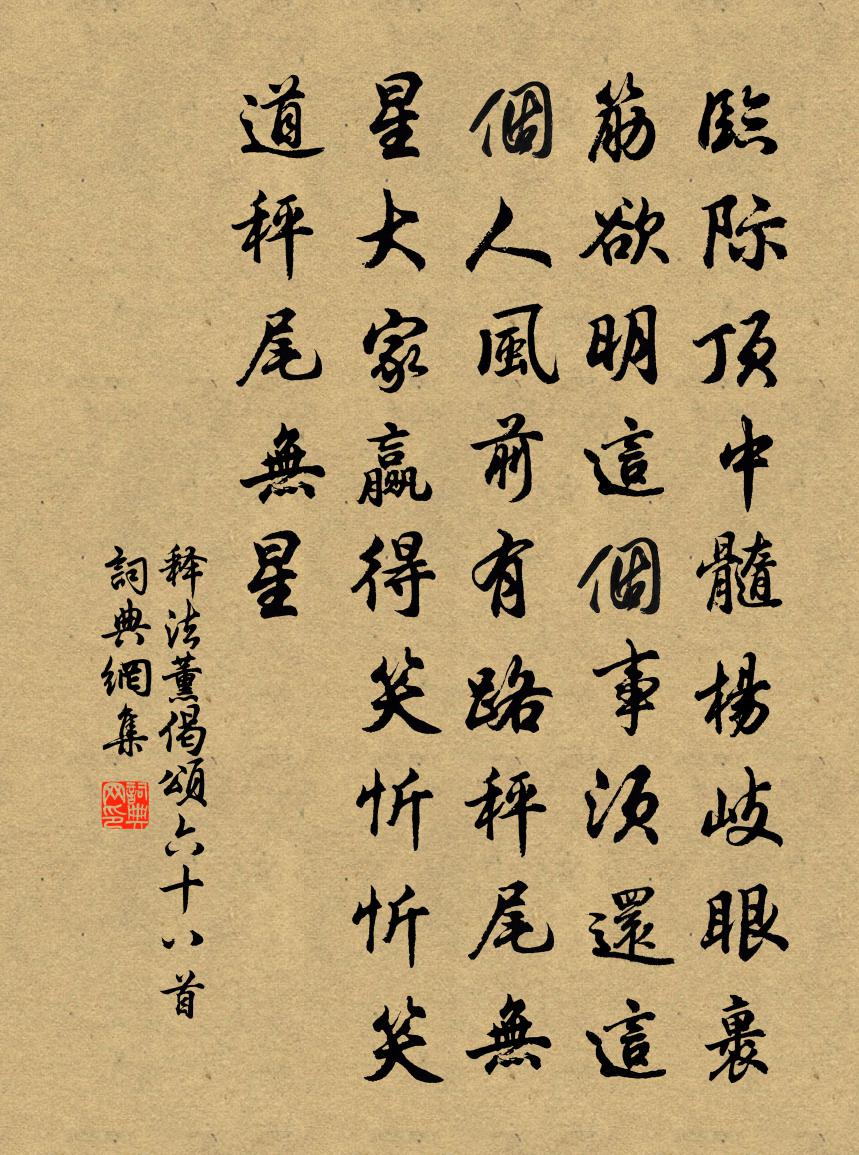 臨际頂中髓楊岐眼裹
筋欲明這個事須還這
個人風前有路秤尾無
星大家贏得笑忻忻笑
道秤尾無星
释法薰偈頌六十八首
詞典網集
詞典网印